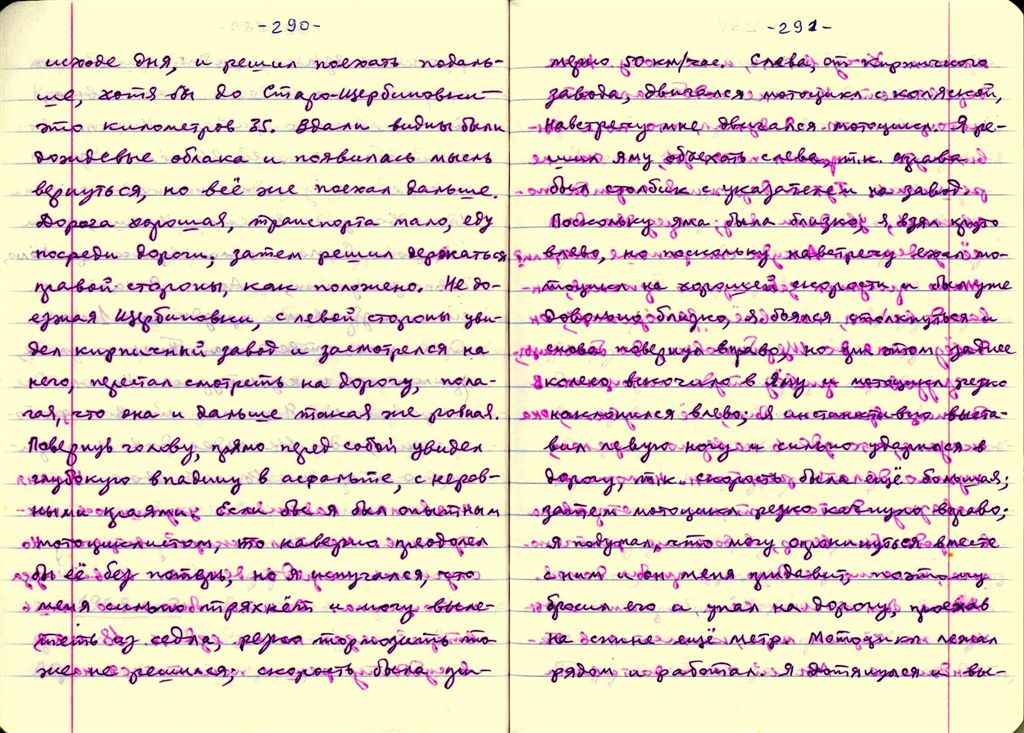 -290-
исходе дня, и решил поехать подаль-
ше, хотя бы до Старо-Щербиновки —
это километров 35. Вдали видны были
дождевые облака и появилась мысль
вернуться, но всё же поехал дальше.
Дорога хорошая, транспорта мало, еду
посреди дороги, затем решил держаться
правой стороны, как положено. Не до-
езжая Щербиновки, с левой стороны уви-
дел кирпичный завод и засмотрелся на
него, перестал смотреть на дорогу, пола-
гая, что она и дальше такая же ровная.
Повернув голову, прямо перед собой увидел
глубокую впадину в асфальте, с неров-
ными краями. Если бы я был опытным
мотоциклистом, то наверно преодолел
бы её без потерь, но я испугался, что
меня сильно тряхнёт и могу выле-
теть из седла, резко тормозить то-
же не решился; скорость была при-
-291-
мерно 50 км/час. Слева, от кирпичного
завода, двигался мотоцикл с коляской,
навстречу мне двигался мотоцикл. Я ре-
шил яму объехать слева, т.к. справа
был столбик с указателем на завод.
Поскольку яма была близко, я взял круто
влево, но поскольку навстречу ехал мо-
тоцикл на хорошей скорости и был уже
довольно близко, я боялся столкнуться и
снова повернул вправо, но при этом заднее
колесо выскочило в яму и мотоцикл резко
наклонился влево; Я инстинктивно выста-
вил левую ногу и сильно ударился о
дорогу, т.к. скорость была ещё большая;
затем мотоцикл резко качнуло вправо;
я подумал, что могу опрокинуться вместе
с ним и он меня придавит, поэтому
бросил его и упал на дорогу, проехав
на спине ещё метр. Мотоцикл лежал
рядом и работал. Я дотянулся и вы-